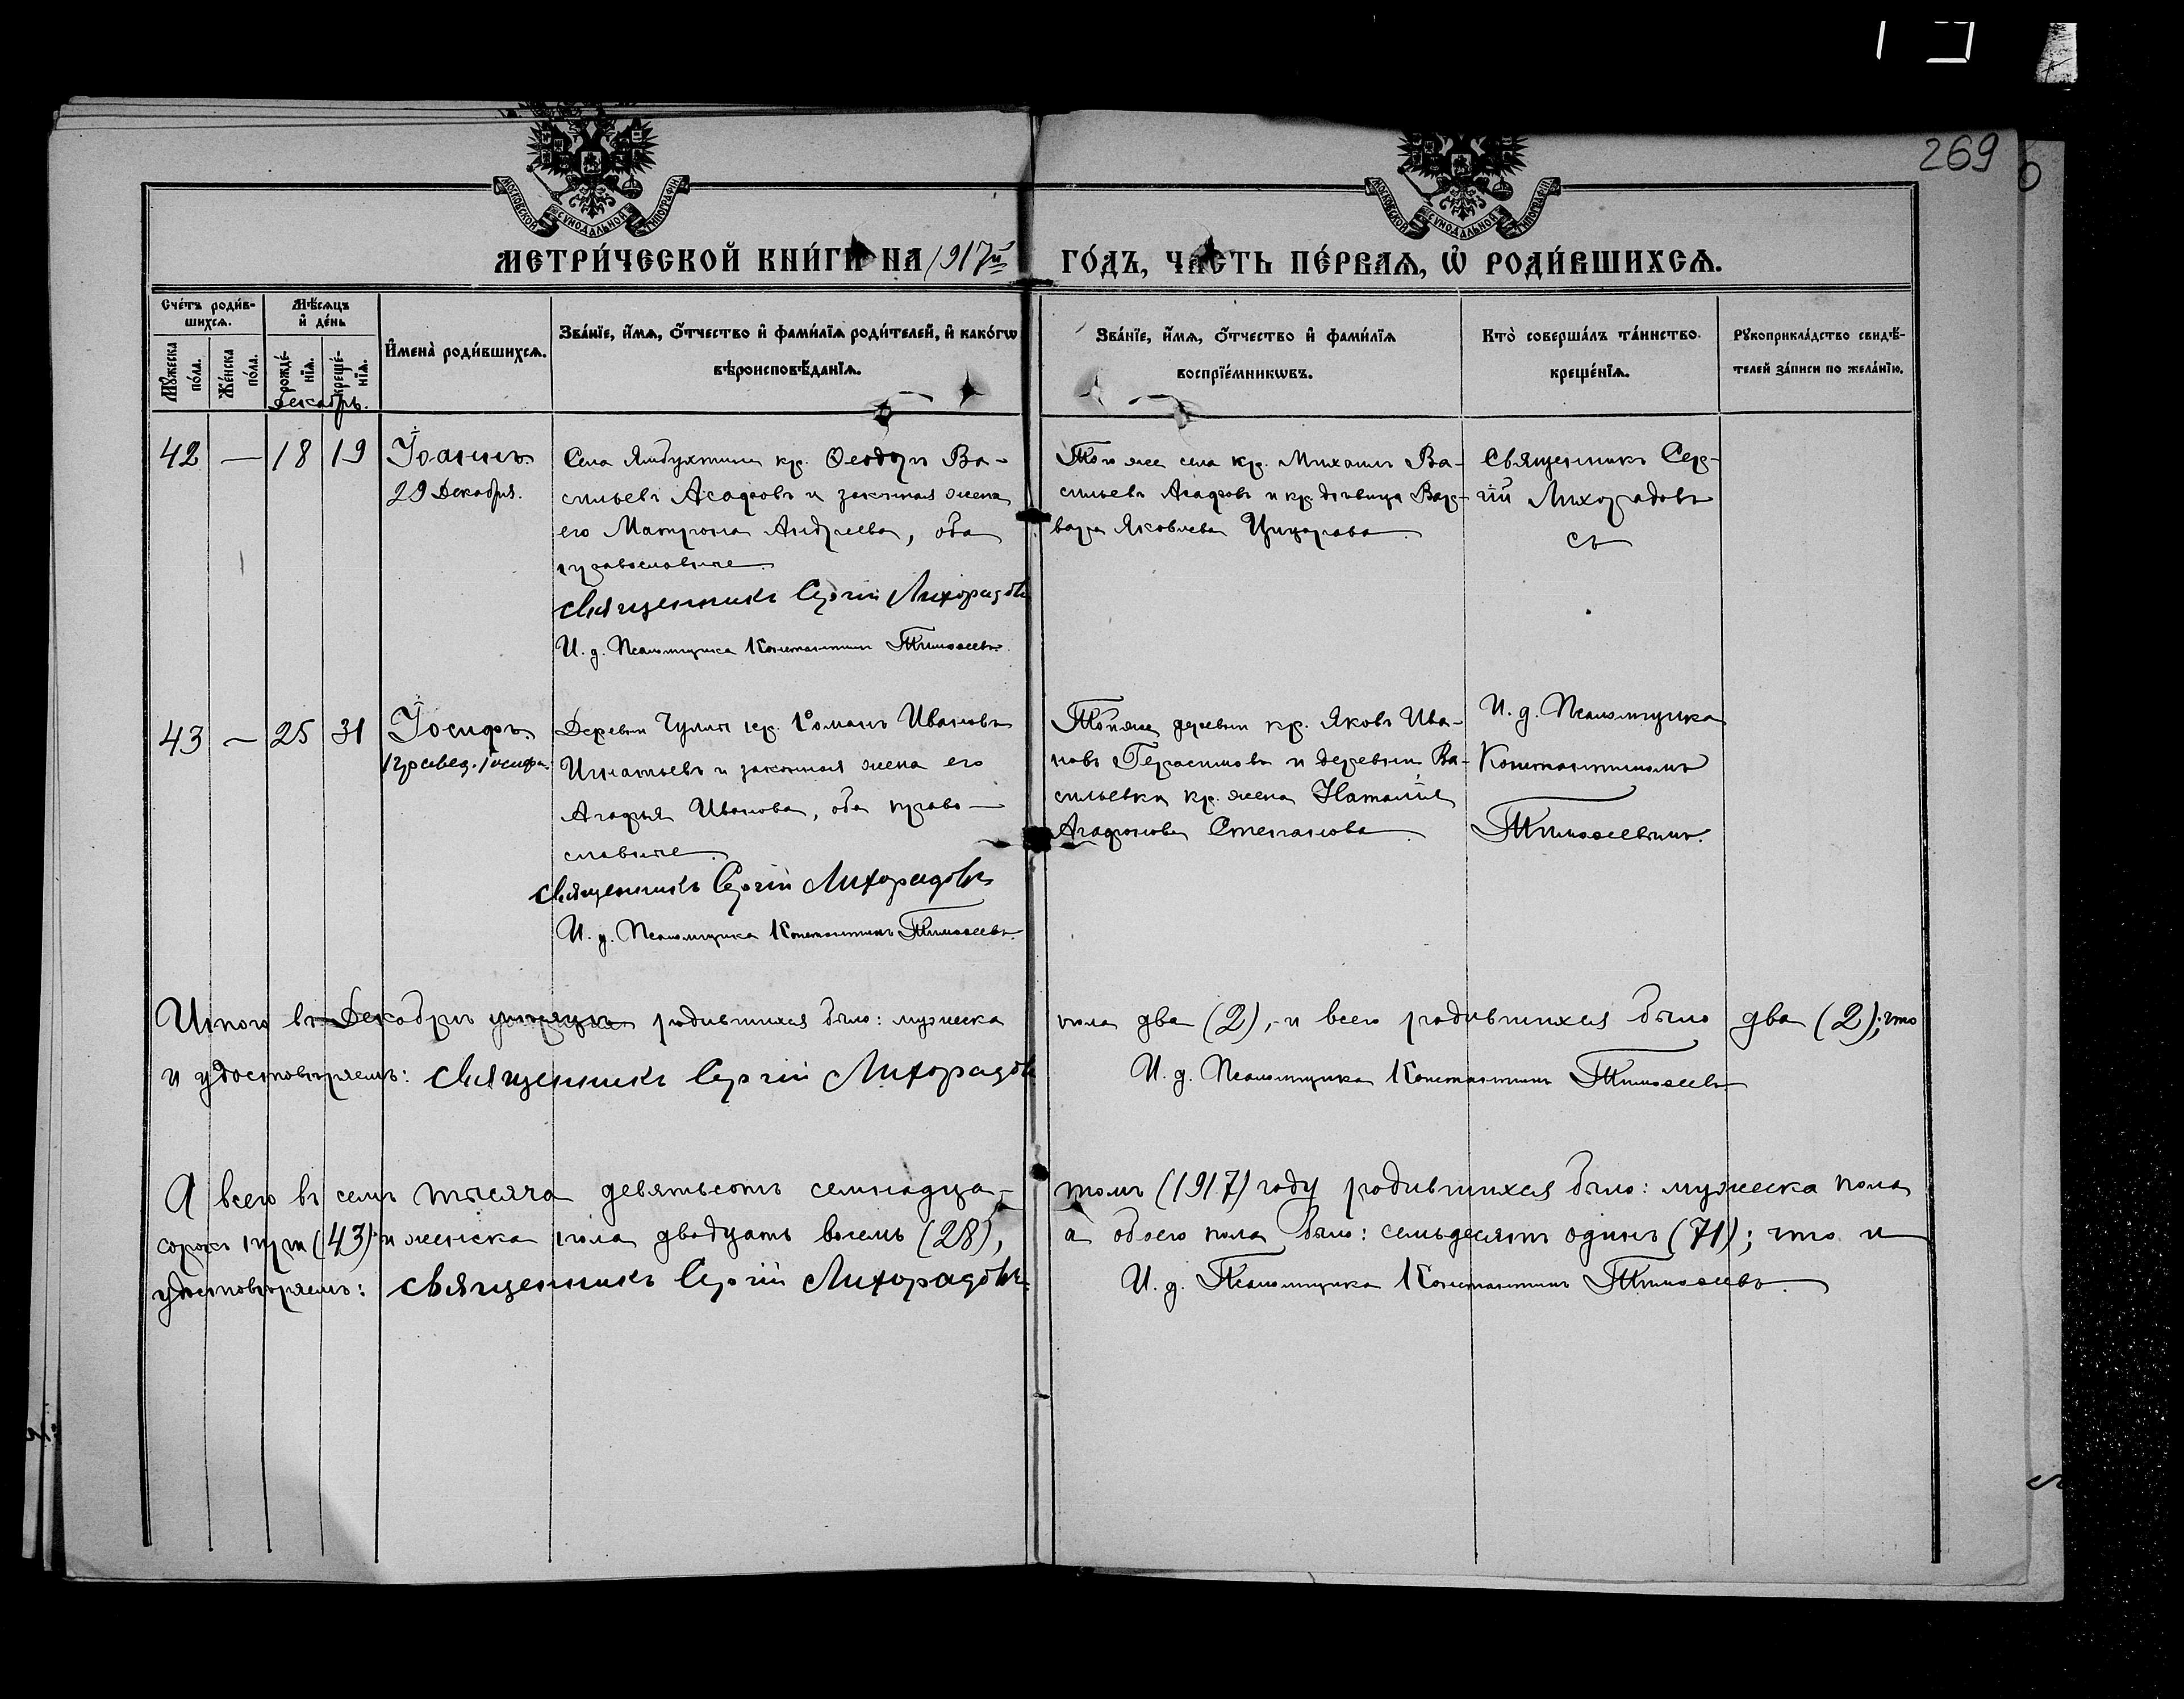 269
МОСКОВСКОЙ СѴНОДАЛЬНОЙ ТИПОГРАФІИ
МОСКОВСКОЙ СѴНОДАЛЬНОЙ ТИПОГРАФІИ
МЕТРИ́ЧЕСКОЙ КНИ́ГИ НА 1917й
ГО́ДЪ, ЧА́СТЬ ПЕ́РВАѦ, Ѡ҆ РОДИ́ВШИХСѦ.
Сче́тъ роди́в-
шихсѧ.
Мꙋ́жеска по́ла.
Же́нска по́ла.
Мѣ́сѧцъ
и҆ де́нь
рожде́-
нїѧ.
креще́-
нїѧ.
Декабрь.
И҆мена̀ роди́вшихсѧ.
Зва́нїе, и҆́мѧ, ѻ҆́тчество и҆ фами́лїѧ роди́телей, и҆ како́гѡ
вѣроисповѣ́данїѧ.
Зва́нїе, и҆́мѧ, ѻ҆́тчество и҆ фами́лїѧ
воспрїе́мникѡвъ.
Кто̀ соверша́лъ та́инство
креще́нїѧ.
Рꙋкоприкла́дство свидѣ́-
телей за́писи по жела́нїю.
42 — 18 19
Іоаннъ.
29 Декабря.
Села Ямбухтина кр. Ѳеодоръ Ва-
сильевъ Агафовъ и законная жена
его Матрона Андреева, оба
православные
Священникъ Сергій Лихорадовъ
И. д. Псаломщика Константинъ Тимоѳеевъ.
Того же села кр. Михаилъ Ва-
сильевъ Агафовъ и кр. дѣвица Вар-
вара Яковлева
Священникъ Сер-
гій Лихорадовъ
43 — 25 31
Іосифъ.
правед. Іосифа.
Деревни Чулпа кр. Романъ Ивановъ
Игнатьевъ и законная жена его
Агафья Иванова, оба право-
славные
Священникъ Сергій Лихорадовъ
И. д. Псаломщика Константинъ Тимоѳеевъ.
Той же деревни кр. Яковъ Ива-
новъ Герасимовъ и деревни Ва-
сильевки кр. жена Наталія
Агафонова Степанова
И. д. Псаломщика
Константиномъ
Тимоѳеевымъ.
Итого въ Декабрѣ мѣсяцѣ родившихся было: мужеска
пола два (2), и всего родившихся было два (2); что
и удостовѣряемъ: Священникъ Сергій Лихорадовъ
И. д. Псаломщика Константинъ Тимоѳеевъ
А всего въ семъ тысяча девятьсотъ семнадца-
томъ (1917) году родившихся было: мужеска пола
сорокъ три (43) и женска пола двадцать восемь (28),
а обоего пола было: семьдесятъ одинъ (71); что и
удостовѣряемъ: Священникъ Сергій Лихорадовъ.
И. д. Псаломщика Константинъ Тимоѳеевъ.